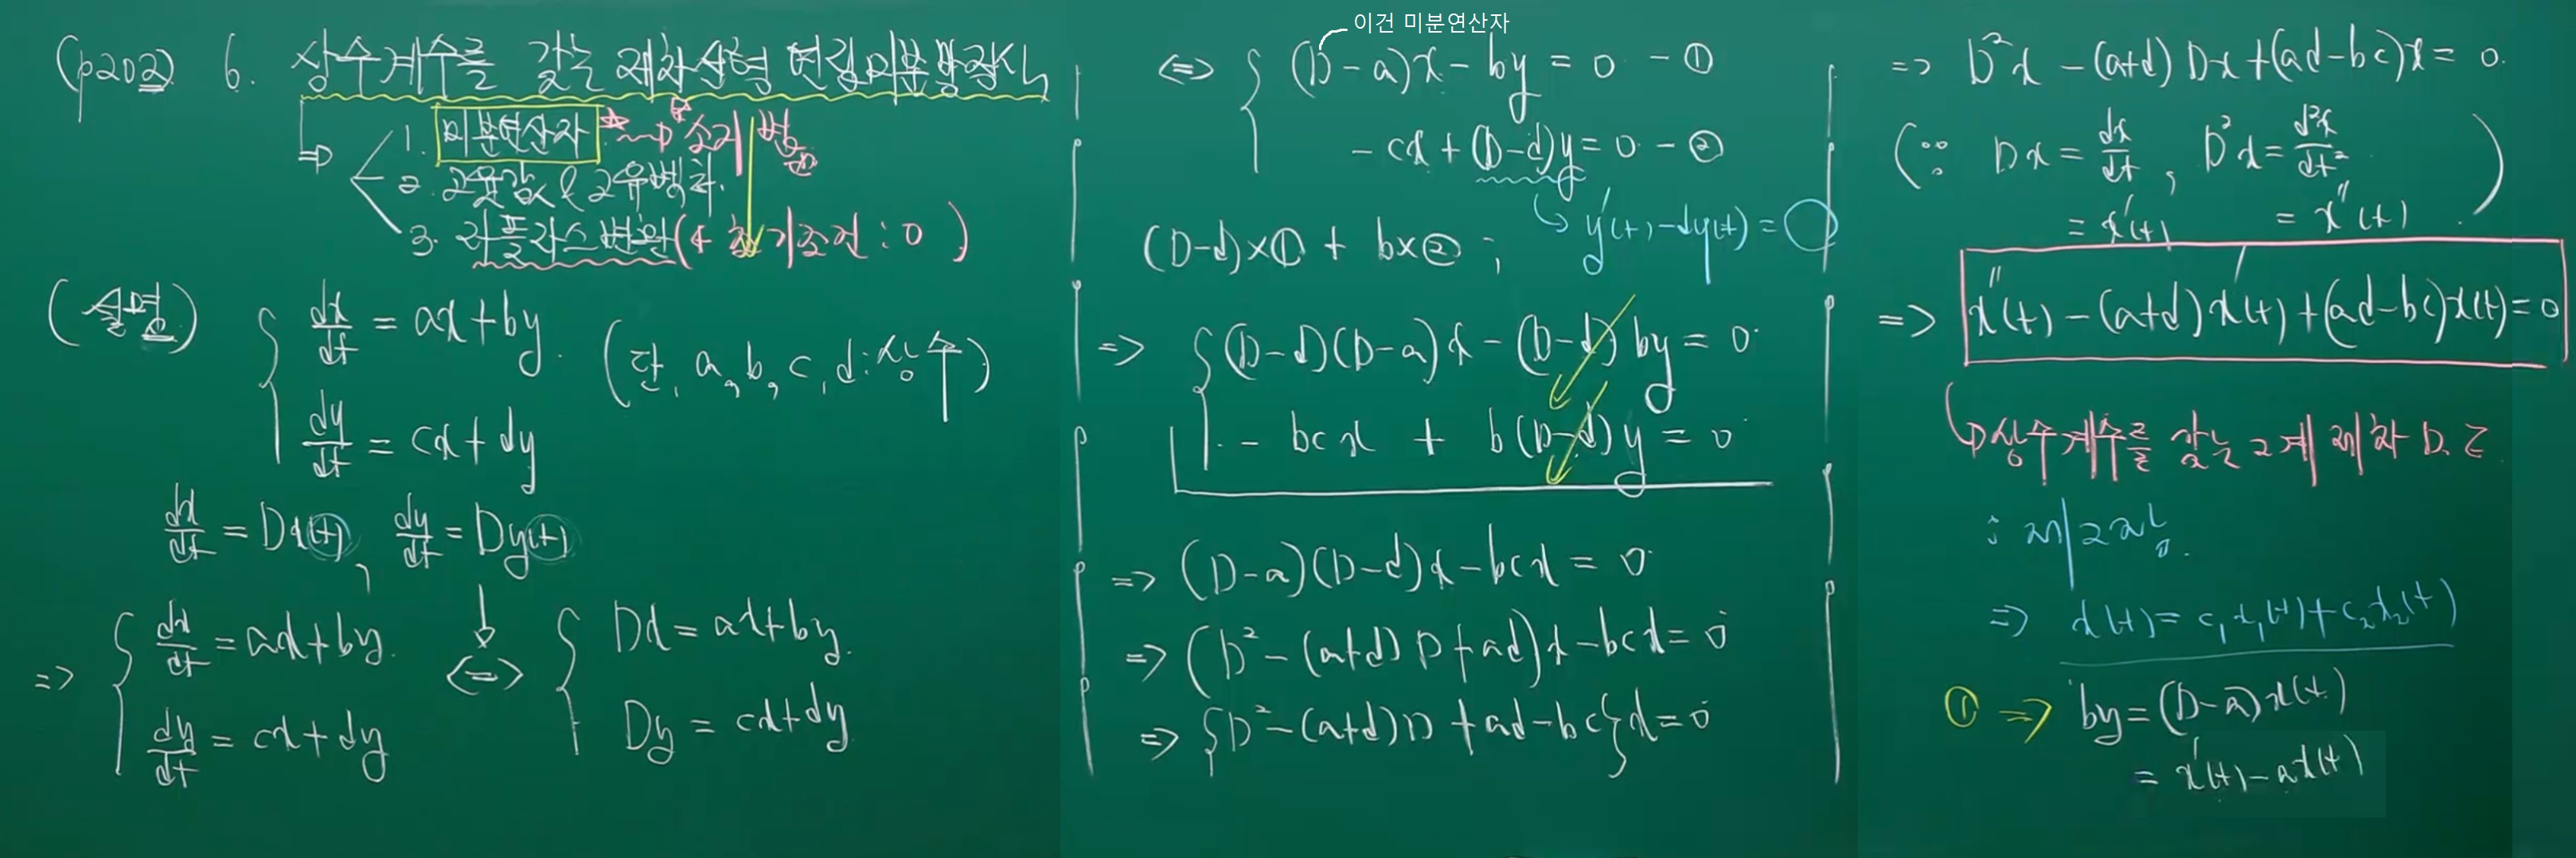 (p202) 6. 상수계수를 갖는 제차선형 연립미분방정식
⇒ 1. 미분연산자 ☆ → 소거법
2. 고유값 & 고유벡터.
3. 라플라스변환 (← 초기조건 : 0 )
(설명) { dx/dt = ax+by. (단, a, b, c, d : 상수)
dy/dt = cx+dy
dx/dt = Dx(t), dy/dt = Dy(t)
⇒ { dx/dt = ax+by. ⇔ { Dx = ax+by.
dy/dt = cx+dy Dy = cx+dy
이건 미분연산자
⇔ { (D-a)x - by = 0 - ①
-cx + (D-d)y = 0 - ②
↳ y'(t)-dy(t) = ○
(D-d)×① + b×② ;
⇒ { (D-d)(D-a)x - (D-d)by = 0
- bcx + b(D-d)y = 0
⇒ (D-a)(D-d)x - bcx = 0
⇒ (D²-(a+d)D+ad)x - bcx = 0
⇒ {D²-(a+d)D+ad-bc}x = 0
⇒ D²x - (a+d)Dx + (ad-bc)x = 0.
(∵ Dx = dx/dt, D²x = d²x/dt²
= x'(t) = x''(t) . )
⇒ x''(t) - (a+d)x'(t) + (ad-bc)x(t) = 0
상수계수를 갖는 2계 제차 D.E
: 제2장.
⇒ x(t) = c₁x₁(t)+c₂x₂(t)
① ⇒ by = (D-a)x(t)
= x'(t) - ax(t)